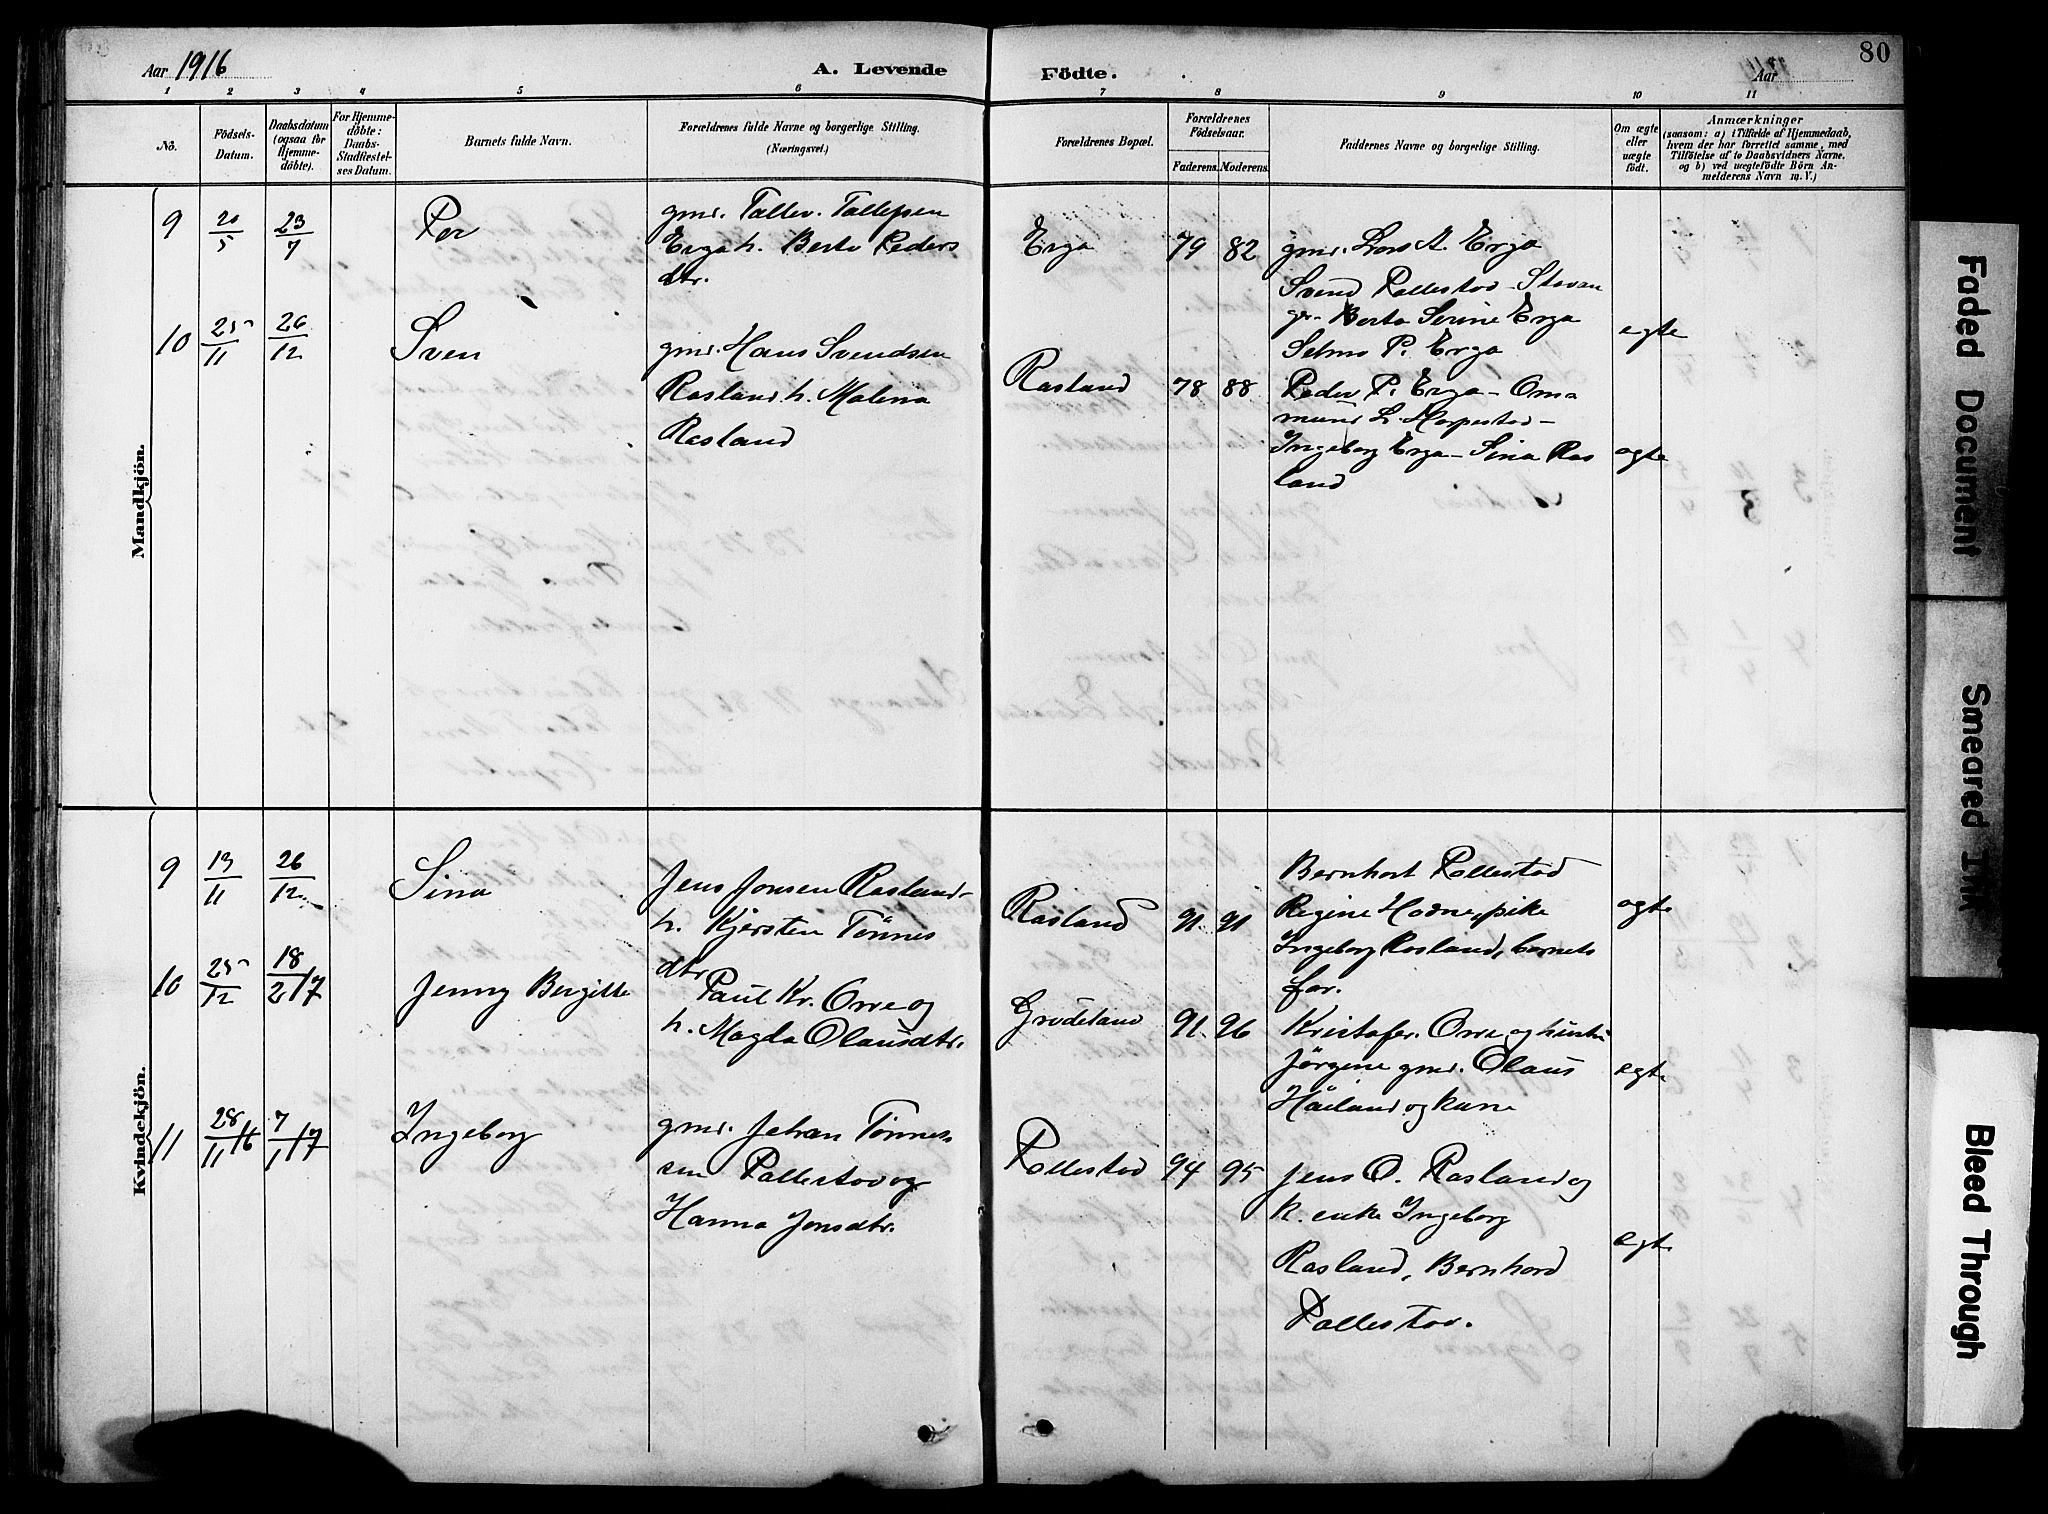 Aar 1916
A. Levende Födte.
Aar
80
1 2 3 4 5 6 7 8 9 10 11
No.
Födsels-Datum.
Daabsdatum (ogsaa for Hjemmedöbte).
For Hjemmedöbte: Daabs-Stadfæstelses Datum.
Barnets fulde Navn.
Forældrenes fulde Navne og borgerlige Stilling. (Næringsvei.)
Forældrenes Bopæl.
Forældrenes Födselsaar.
Faderens. Moderens.
Faddernes Navne og borgerlige Stilling.
Om ægte eller uægte födt.
Anmærkninger (saasom: a) i Tilfælde af Hjemmedaab, hvem der har forrettet samme, med Tilföielse af to Daabsvidners Navne, og b) ved uægtefödte Börn Anmelderens Navn m. V.)
Mandkjön.
9 20/5 23/7 Per
gmd. Tallev. Tallefsen
Erga h. Berta Peders
dtr.
Erga 79 82
gmd. Lars A. Erga
Svend Pollestad - Stavan
ger - Berta Serine Erga
Selma P. Erga
egte
10 25/11 26/12 Sven
gmd. Hans Svendsen
Rasland h. Malena
Rasland
Rasland 78 88
Peder P. Erga - Om-
mund L. Horpestad -
Ingeborg Erga - Sina Ras
land
egte
Kvindekjön.
9 13/11 26/12 Sina
Jens Jonsen Rasland
h. Kjersten Tönnes
dtr
Rasland 91. 91
Bernhart Pollestad
Regine Hodne, pike
Ingeborg Rasland, barnets
far.
egte
10 25/12 18/2 17 Jenny Bergitte
Paul Kr. Orre og
h. Magda Olausdtr.
Grudeland 91. 96
Kristofer. Orre og hustru
Jörgine gmd. Olaus
Höiland og kone
egte
11 28/11 16 7/1 17 Ingeborg
gmd. Johan Tönnes
sen Pollestad og
Hanna Jonsdtr.
Pollestad 94 95
Jens O. Rasland og
k. enke Ingeborg
Rasland, Bernhard
Pollestad.
egte
Faded Document
Smeared Ink
Bleed Through